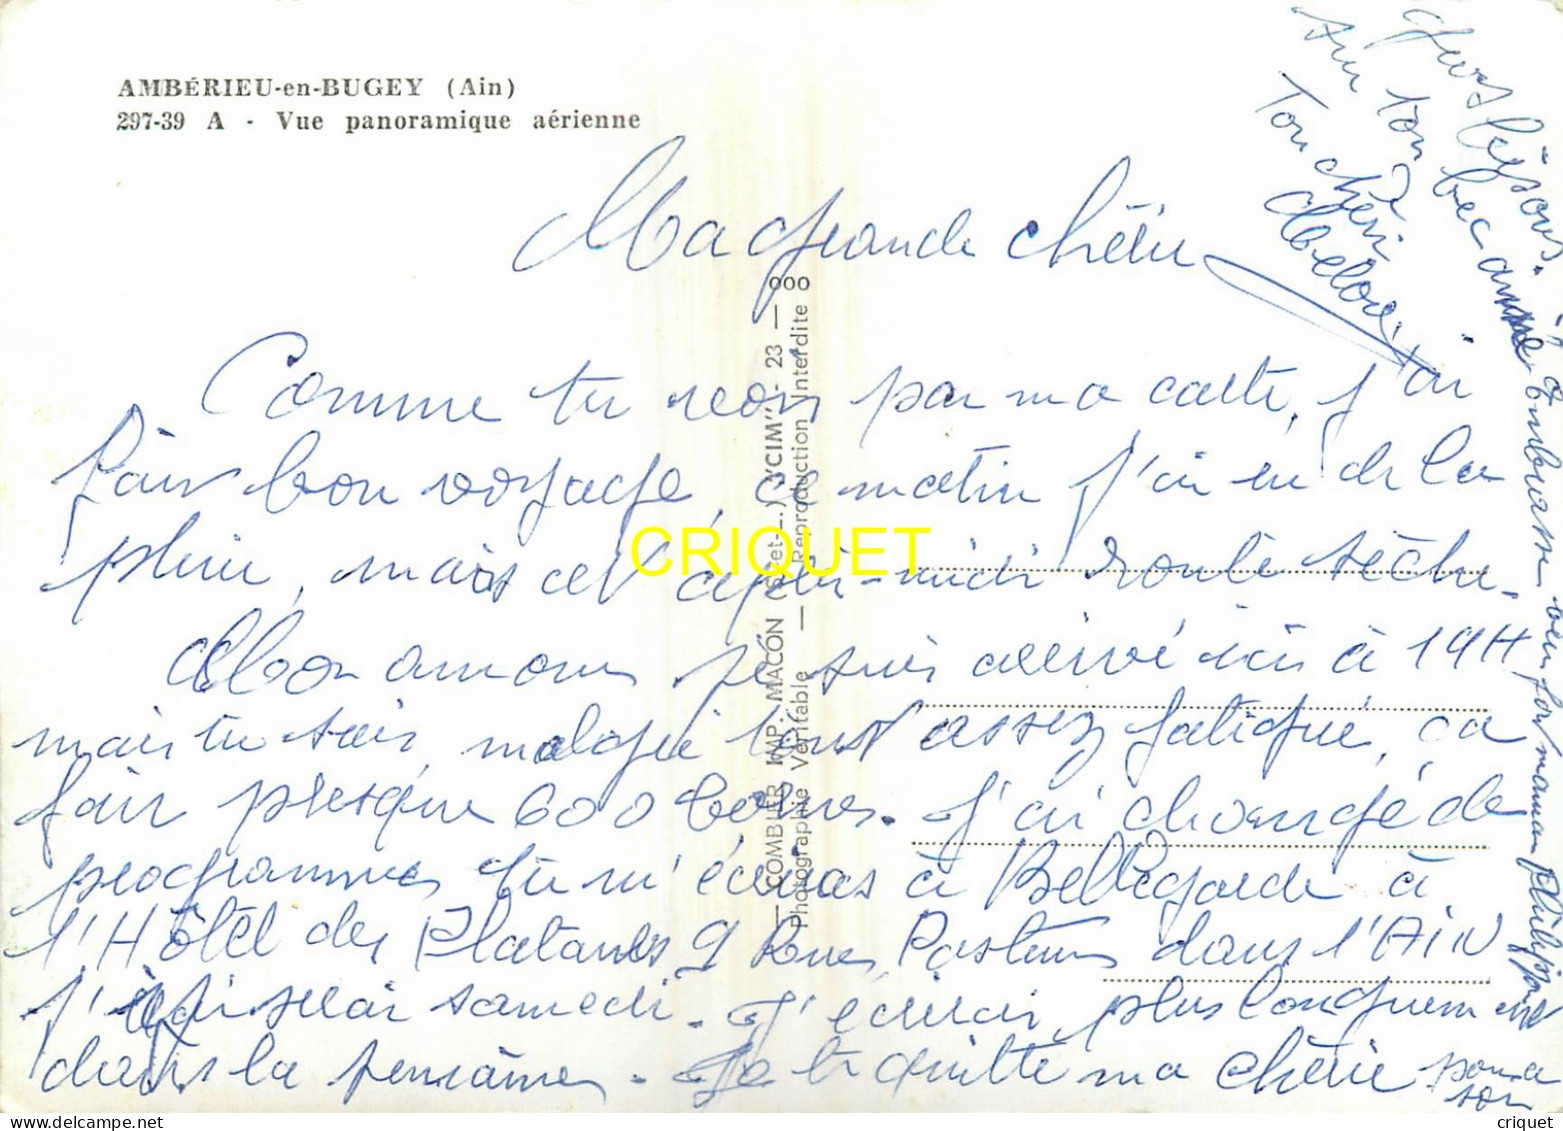 AMBÉRIEU-en-BUGEY (Ain)
297-39 A - Vue panoramique aérienne
Ma grande chérie
Comme tu vois par ma carte, j'ai
fais bon voyage, ce matin j'ai eu de la
pluie, mais cet après-midi route sèche.
Mon amour je suis arrivé ici à 19H
mais tu sais, malgré tout assez fatigué, ça
fair presque 600 bornes. J'ai changé de
programme tu m'écriras à Bellegarde à
l'Hôtel des Platanes 9 Rue Pasteur dans l'AiN
j'y serai samedi. J'écrirai plus longuement
dans la semaine. Je te quitte ma chérie
Gros bisous.
sur ton bec aimé
Ton chéri
embrasse bien fort maman Philippe
COMBIER IMP. MACON "CIM" - 23 - 000
Photographie Véritable — Reproduction Interdite
CRIQUET
criquet